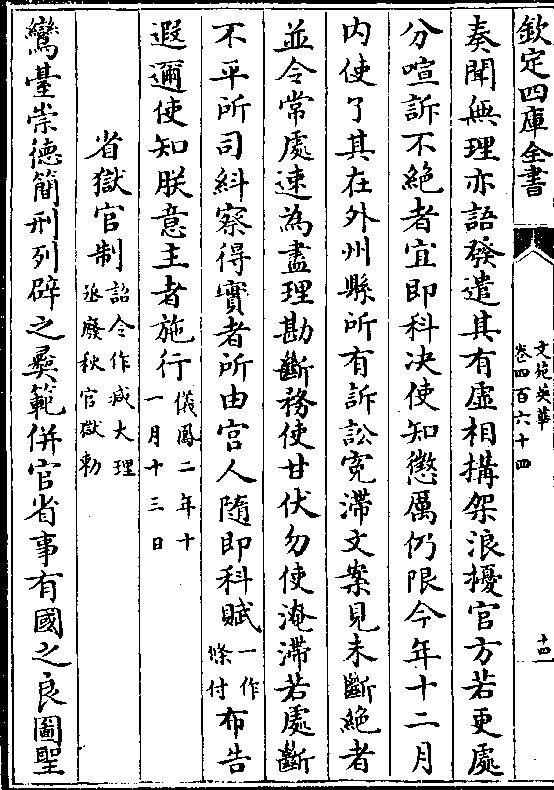 欽定四庫全書
文苑英華
卷四百六十四
十四
奏聞無理亦語發遣其有虛相搆架浪擾官方若更處
分喧訴不絕者宜即科決使知懲厲仍限今年十二月
内使了其在外州縣所有訴訟寃滯文案見未斷絕者
並令常處速為盡理勘斷務使甘伏勿使淹滯若處斷
不平所司糾察得實者所由官人隨即科賦一作條付布告
遐邇使知朕意主者施行儀鳳二年十一月十三日
省獄官制詔令作减大理丞廢秋官獄勅
鸞臺崇德簡刑列辟之彛範併官省事有國之良圖聖